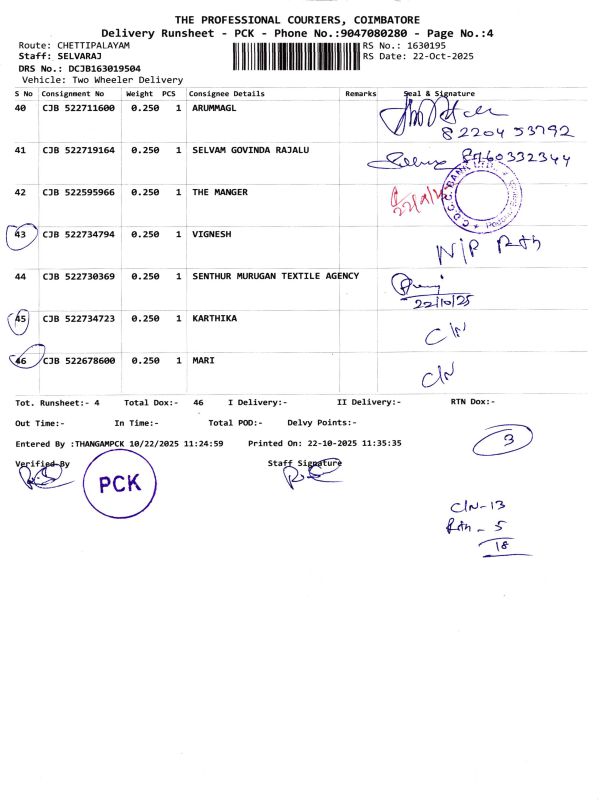 THE PROFESSIONAL COURIERS, COIMBATORE
Delivery Runsheet - PCK - Phone No.:9047080280 - Page No.:4
Route: CHETTIPALAYAM RS No.: 1630195
Staff: SELVARAJ RS Date: 22-Oct-2025
DRS No.: DCJB163019504
Vehicle: Two Wheeler Delivery
S No Consignment No Weight PCS Consignee Details Remarks Seal & Signature
40 CJB 522711600 0.250 1 ARUMMAGL
8220453792
41 CJB 522719164 0.250 1 SELVAM GOVINDA RAJALU
42 CJB 522595966 0.250 1 THE MANGER
43 CJB 522734794 0.250 1 VIGNESH N/P Rth
44 CJB 522730369 0.250 1 SENTHUR MURUGAN TEXTILE AGENCY
22/10/25
45 CJB 522734723 0.250 1 KARTHIKA C/N
46 CJB 522678600 0.250 1 MARI C/N
Tot. Runsheet:- 4 Total Dox:- 46 I Delivery:- II Delivery:- RTN Dox:-
Out Time:- In Time:- Total POD:- Delvy Points:-
Entered By :THANGAMPCK 10/22/2025 11:24:59 Printed On: 22-10-2025 11:35:35
3
Verified By Staff Signature
PCK
C/N-13
Rth - 5
18